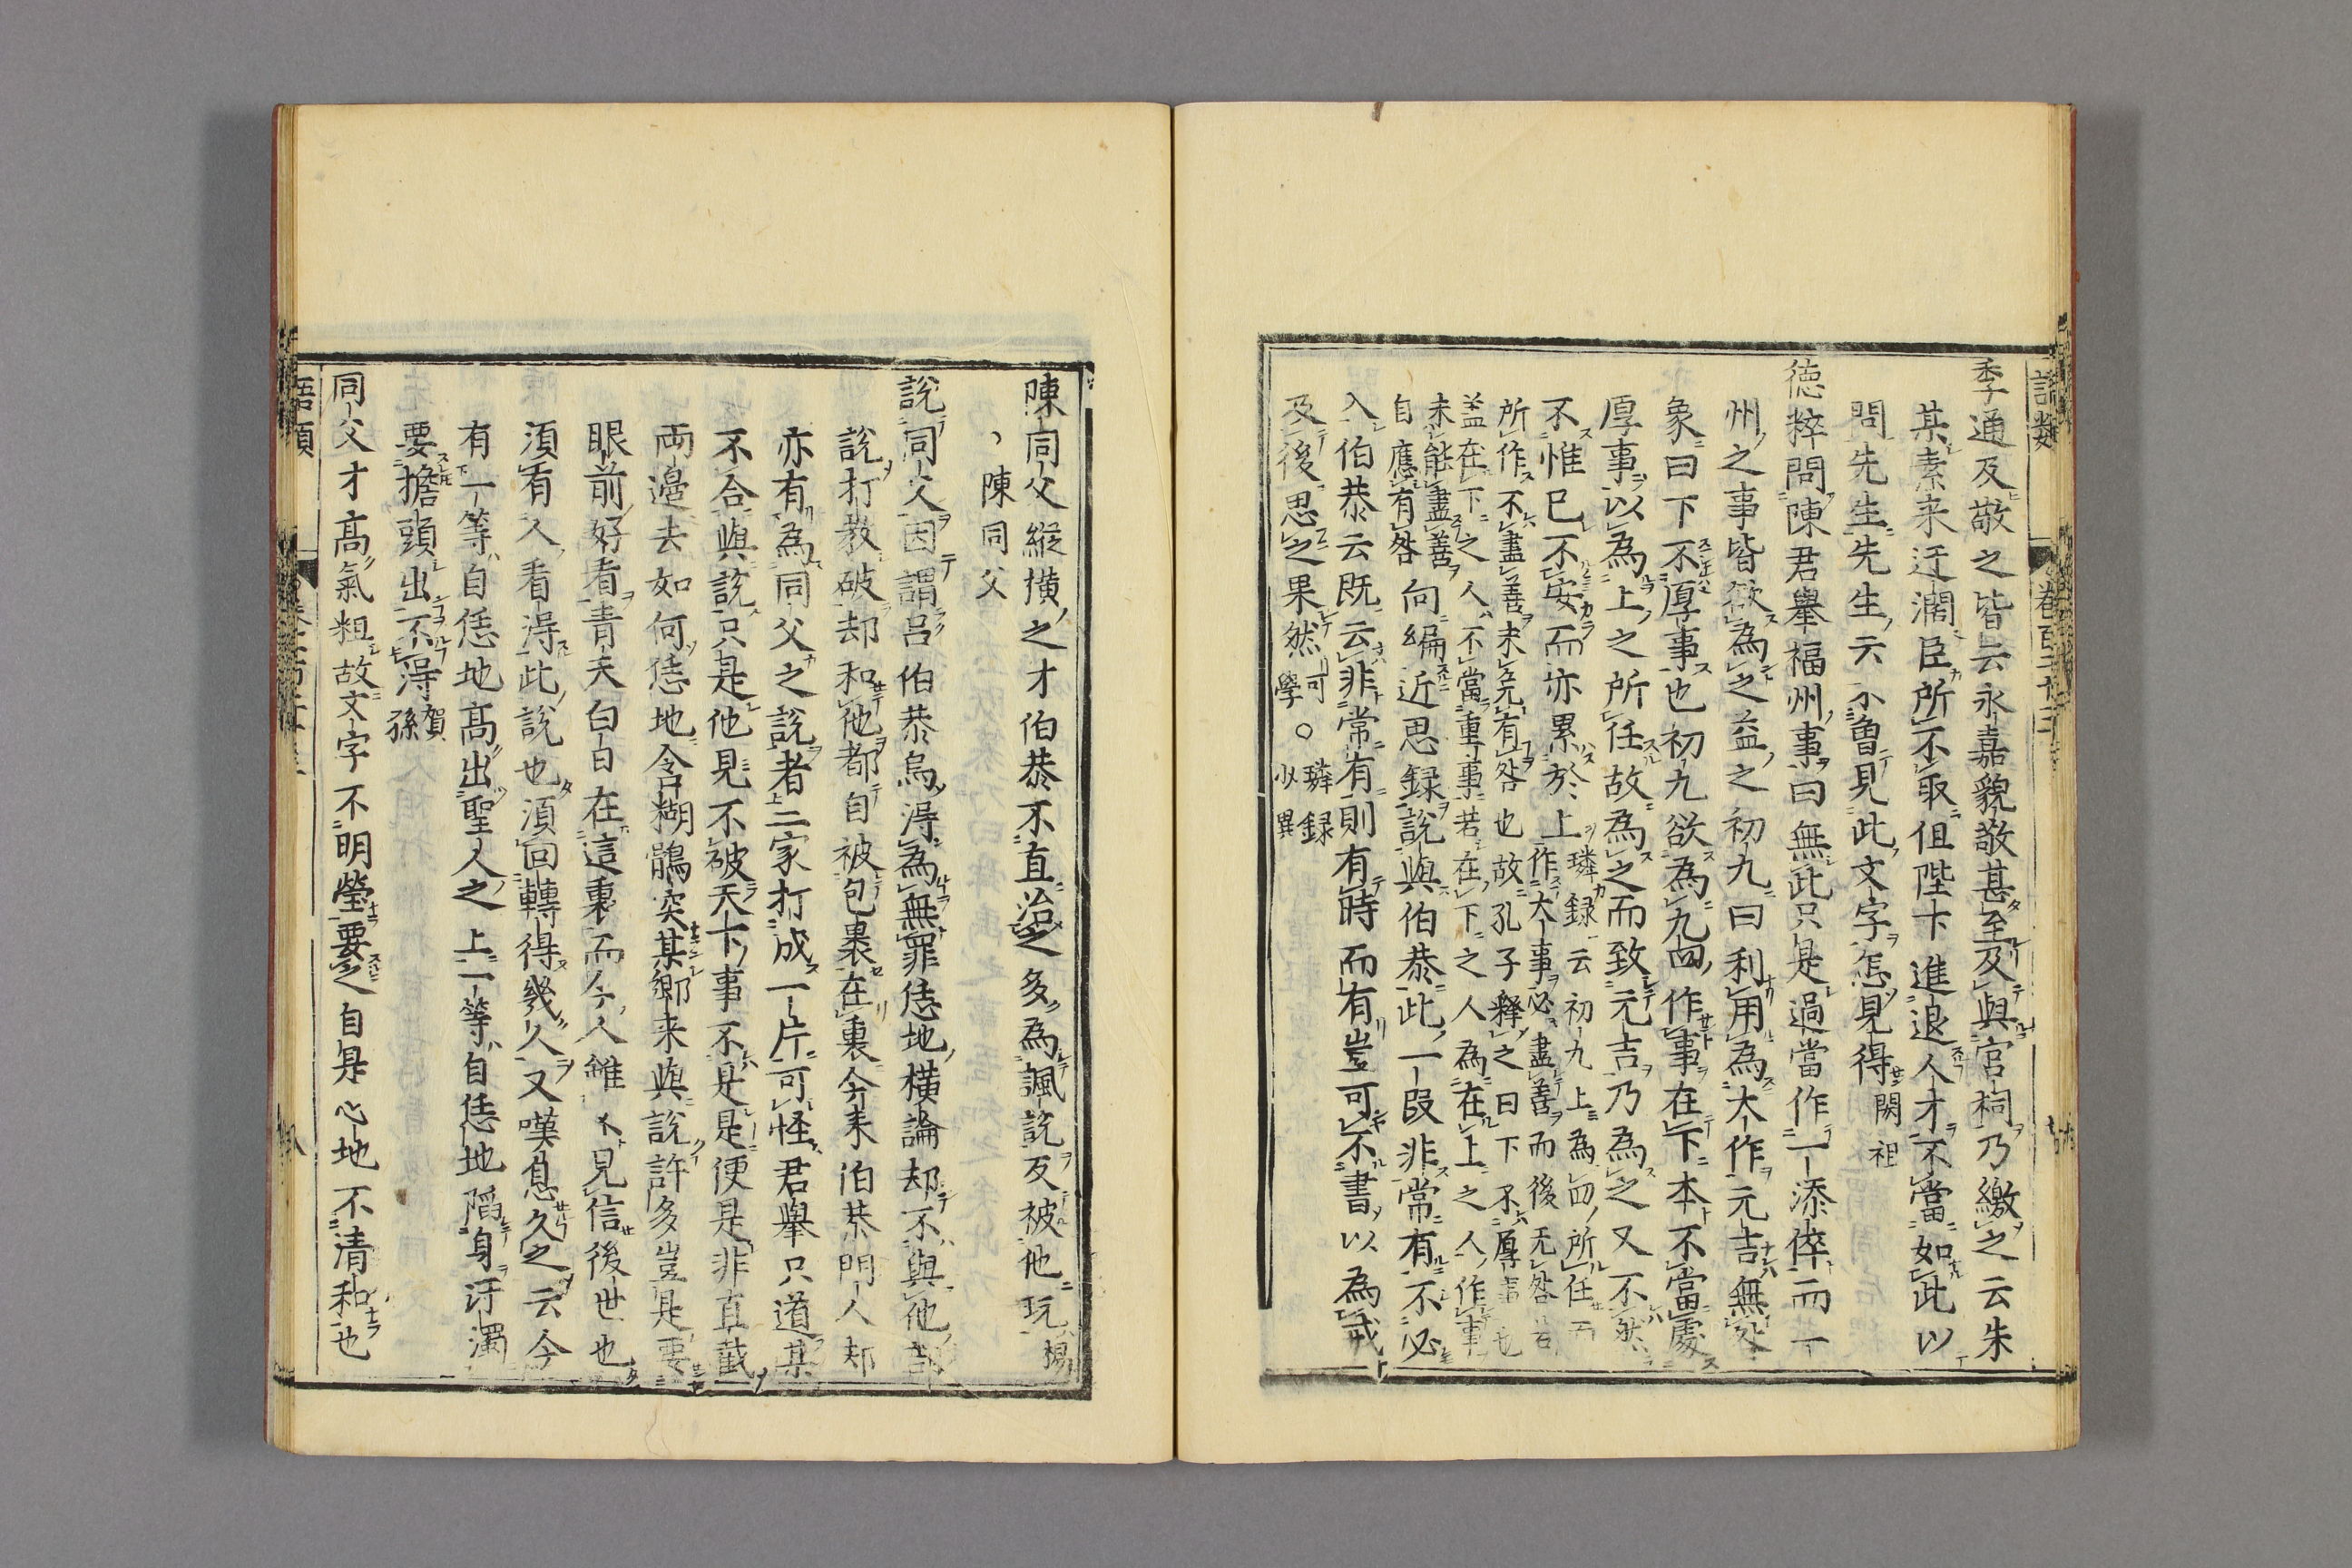 語類
卷百二十三
季通及敬之皆云永嘉貌敬甚至及與宮祠乃繳之云朱
某素来迂濶臣所不取但陛下進退人才不當如此以
問先生先生云不魯見此文字怎見得閎祖
德粹問陳君舉福州事曰無此只是過當作一添倅而一
州之事皆欲為之益之初九曰利用為大作元吉無咎
象曰下不厚事也初九欲為九四作事在下本不當處
厚事以為上之所任故為之而致元吉乃為之又不然
不惟已不安而亦累於上璘録云初九上為四所任而
作大事必盡善而後无咎若
所作不盡善未免有咎也故孔子釋之曰下不厚事也
盖在下之人不當重事若在下之人為在上之人作事
未能盡善
自應有咎向編近思録說與伯恭此一段非常有不必
入伯恭云既云非常有則有時而有豈可不書以為戒
及後思之果然可學。璘録少異
陳同父縱横之才伯恭不直治之多為諷說反被他玩楊
陳同父
說同父因謂呂伯恭烏得為無罪恁地横論却不與他剖
說打敎破却和他都自被包裹在裏今来伯恭門人却
亦有為同父之說者二家打成一片可怪君舉只道某
不合與說只是他見不破天下事不是是便是非直截
兩邉去如何恁地含糊鶻突某鄉来與說許多豈是要
眼前好看青天白日在這裏而今人雖不見信後世也
須有人看得此說也須回轉得幾人又嘆息久之云今
有一等自恁地高出聖人之上一等自恁地䧟身汙濁
要擔頭出不得賀孫
同父才高氣粗故文字不明瑩要之自是心地不清和也
語類
八